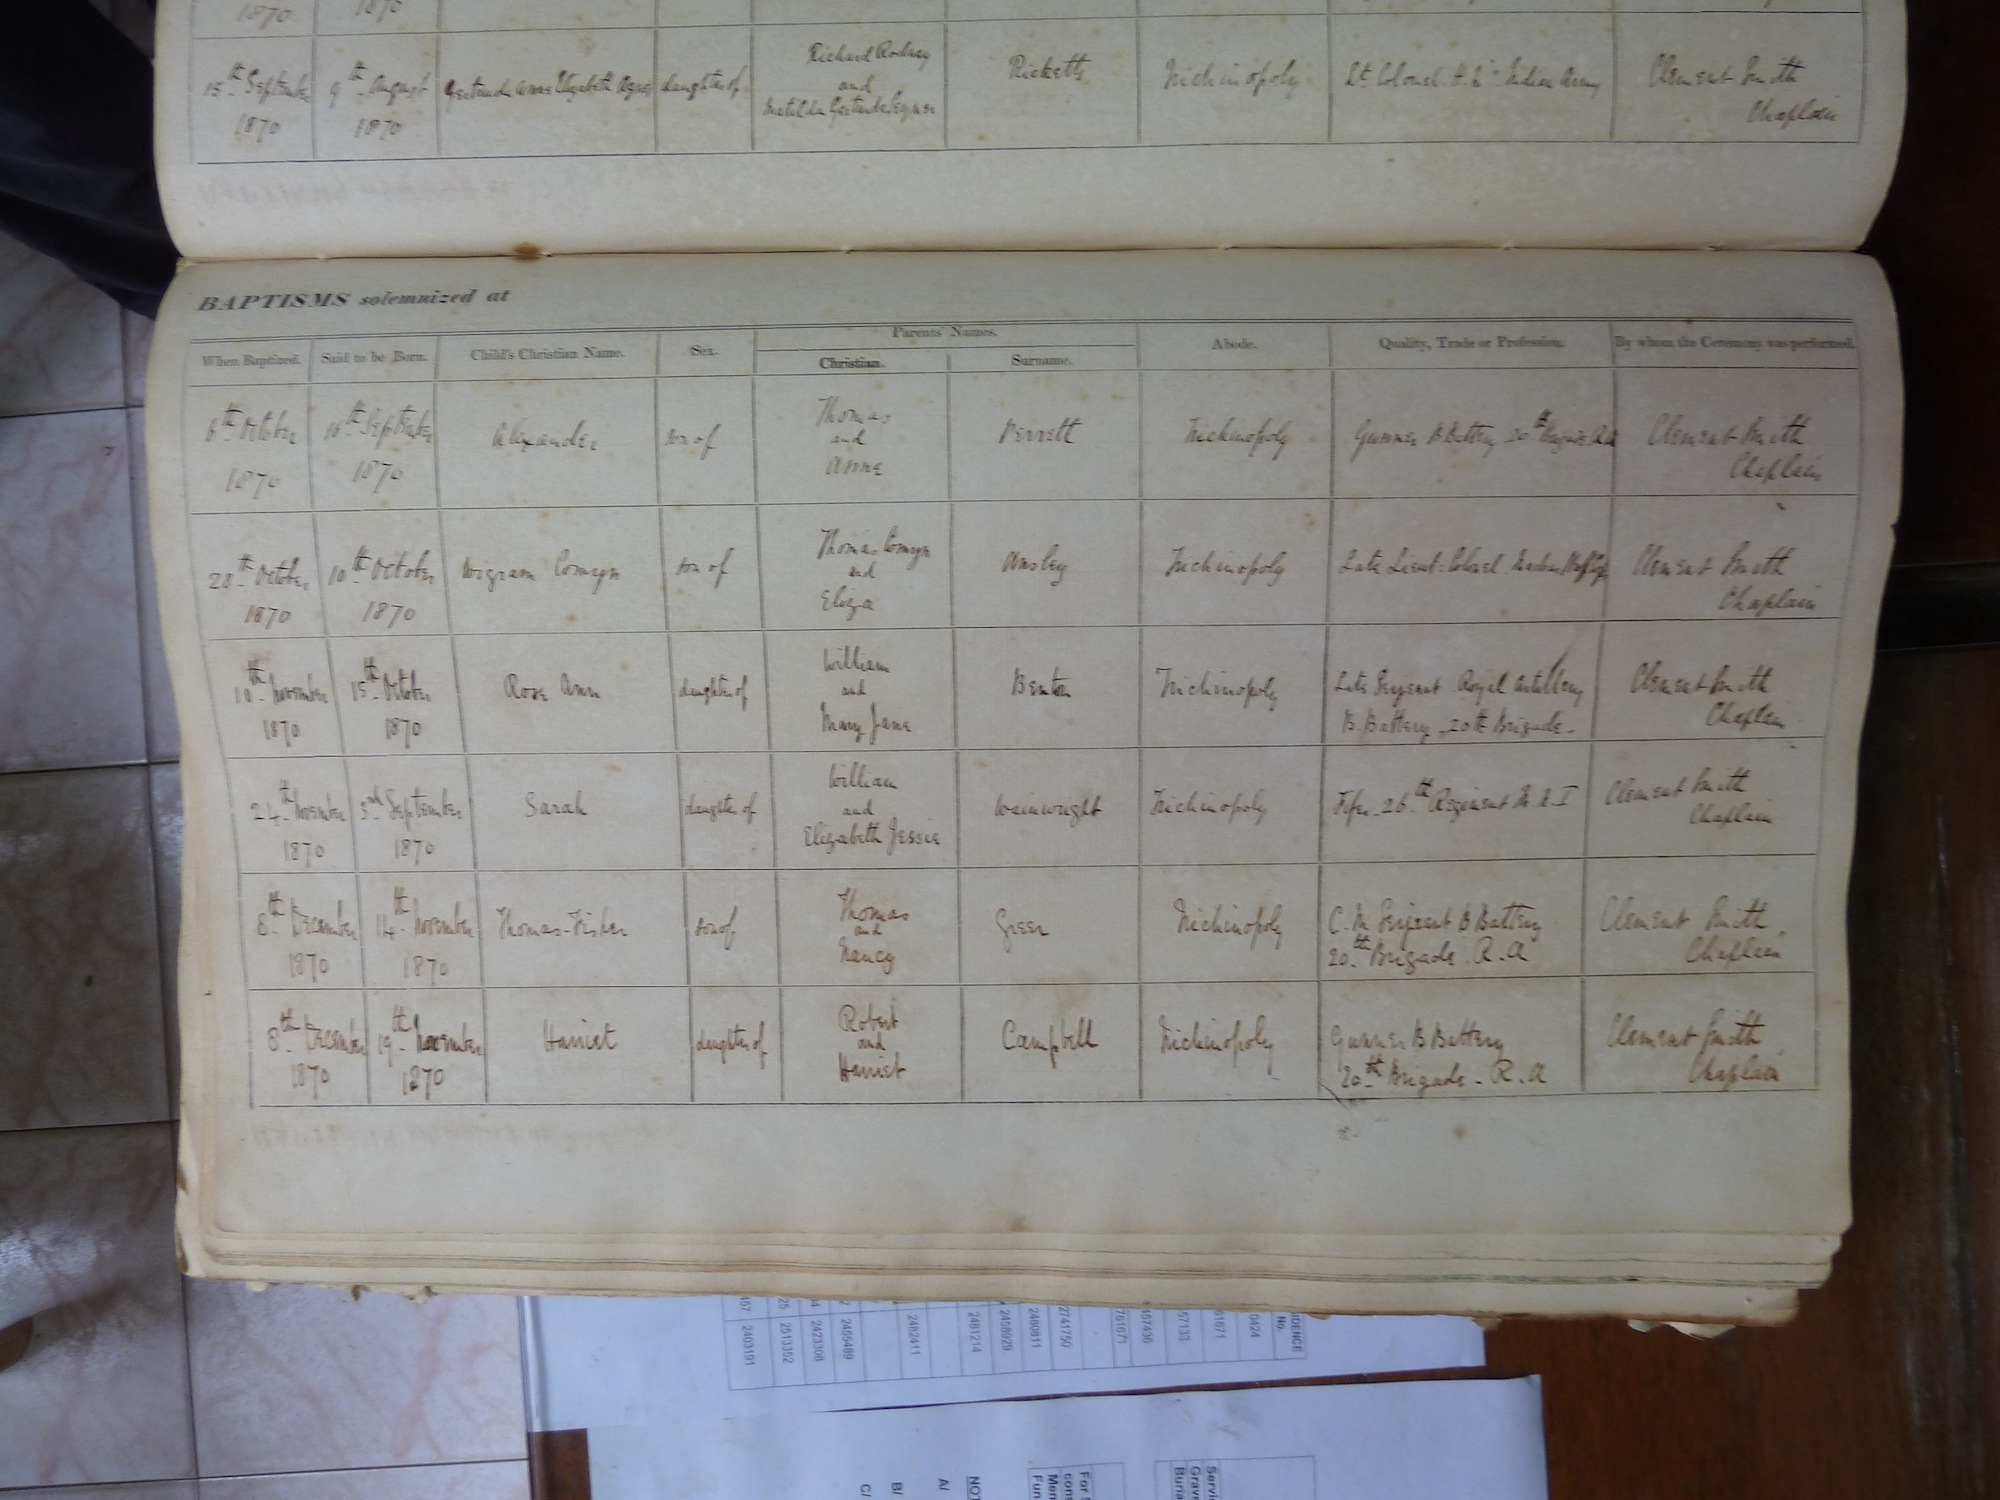 1870 1870
15th September 9th August Gertrude Anne Elizabeth Agnes daughter of Richard Rodney Ricketts Trichinopoly Lt Colonel H.M's Indian Army Clement Smith
1870 1870 and Chaplain
Matilda Gertrude
BAPTISMS solemnized at
When Baptized. Said to be Born. Child's Christian Name. Sex. Parents' Names. Abode. Quality, Trade or Profession. By whom the Ceremony was performed.
Christian. Surname.
6th October September Alexander son of Thomas Perrett Trichinopoly Gunner B Battery 20th Brigade R.A Clement Smith
1870 1870 and Chaplain
Anne
28th October 10th October Wigram Comyn son of Thomas Comyn Ansley Trichinopoly Late Lieut: Colonel Madras Staff Clement Smith
1870 1870 and Chaplain
Eliza
10th November 15th October Rose Ann daughter of William Benton Trichinopoly Late Sergeant Royal Artillery Clement Smith
1870 1870 and B. Battery 20th Brigade - Chaplain
Mary Jane
24th November 3rd September Sarah daughter of William Wainwright Trichinopoly Fifer 26th Regiment M.N.I Clement Smith
1870 1870 and Chaplain
Elizabeth Jessie
8th December 14th November Thomas-Fisher son of Thomas Green Trichinopoly C. M. Sergeant B Battery Clement Smith
1870 1870 and 20th Brigade. R.A Chaplain
Nancy
8th December 19th November Harriet daughter of Robert Campbell Trichinopoly Gunner B Battery Clement Smith
1870 1870 and 20th Brigade - R.A Chaplain
Harriet
2403191
2513352
2423308
2455489
2482411
2481214
2458929
2480811
2741750
761671
457436
57133
61671
0424
IDENCE
No.
C/
B/
A/
NOT
For
con
Mem
Fun
Servi
Grave
Buria